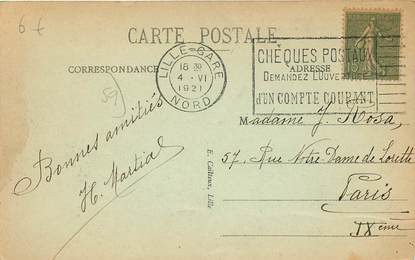 6 €
CARTE POSTALE
CORRESPONDANCE
LILLE-GARE
18
4 - VI
1921
NORD
CHEQUES POSTAUX
ADRESSE
DEMANDEZ L'OUVERTURE
D'UN COMPTE COURANT
59
Bonnes amitiés
H. Martial
E. Cailteux, Lille
Madame J. Rosa,
57, Rue Notre-Dame de Lorette
Paris
IXème